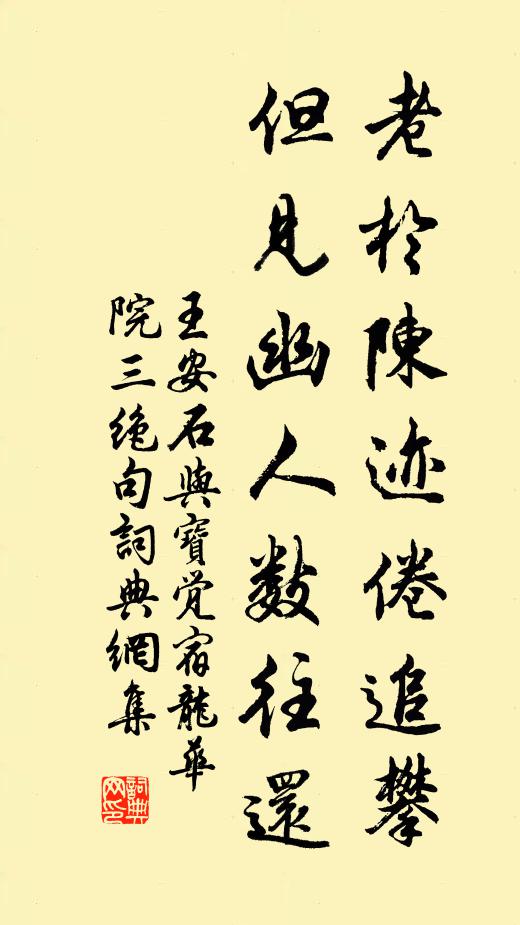 老於陳迹倦追攀
但見幽人數往還
王安石與寶觉宿龍華
院三絶句詞典網集
詞典
网印